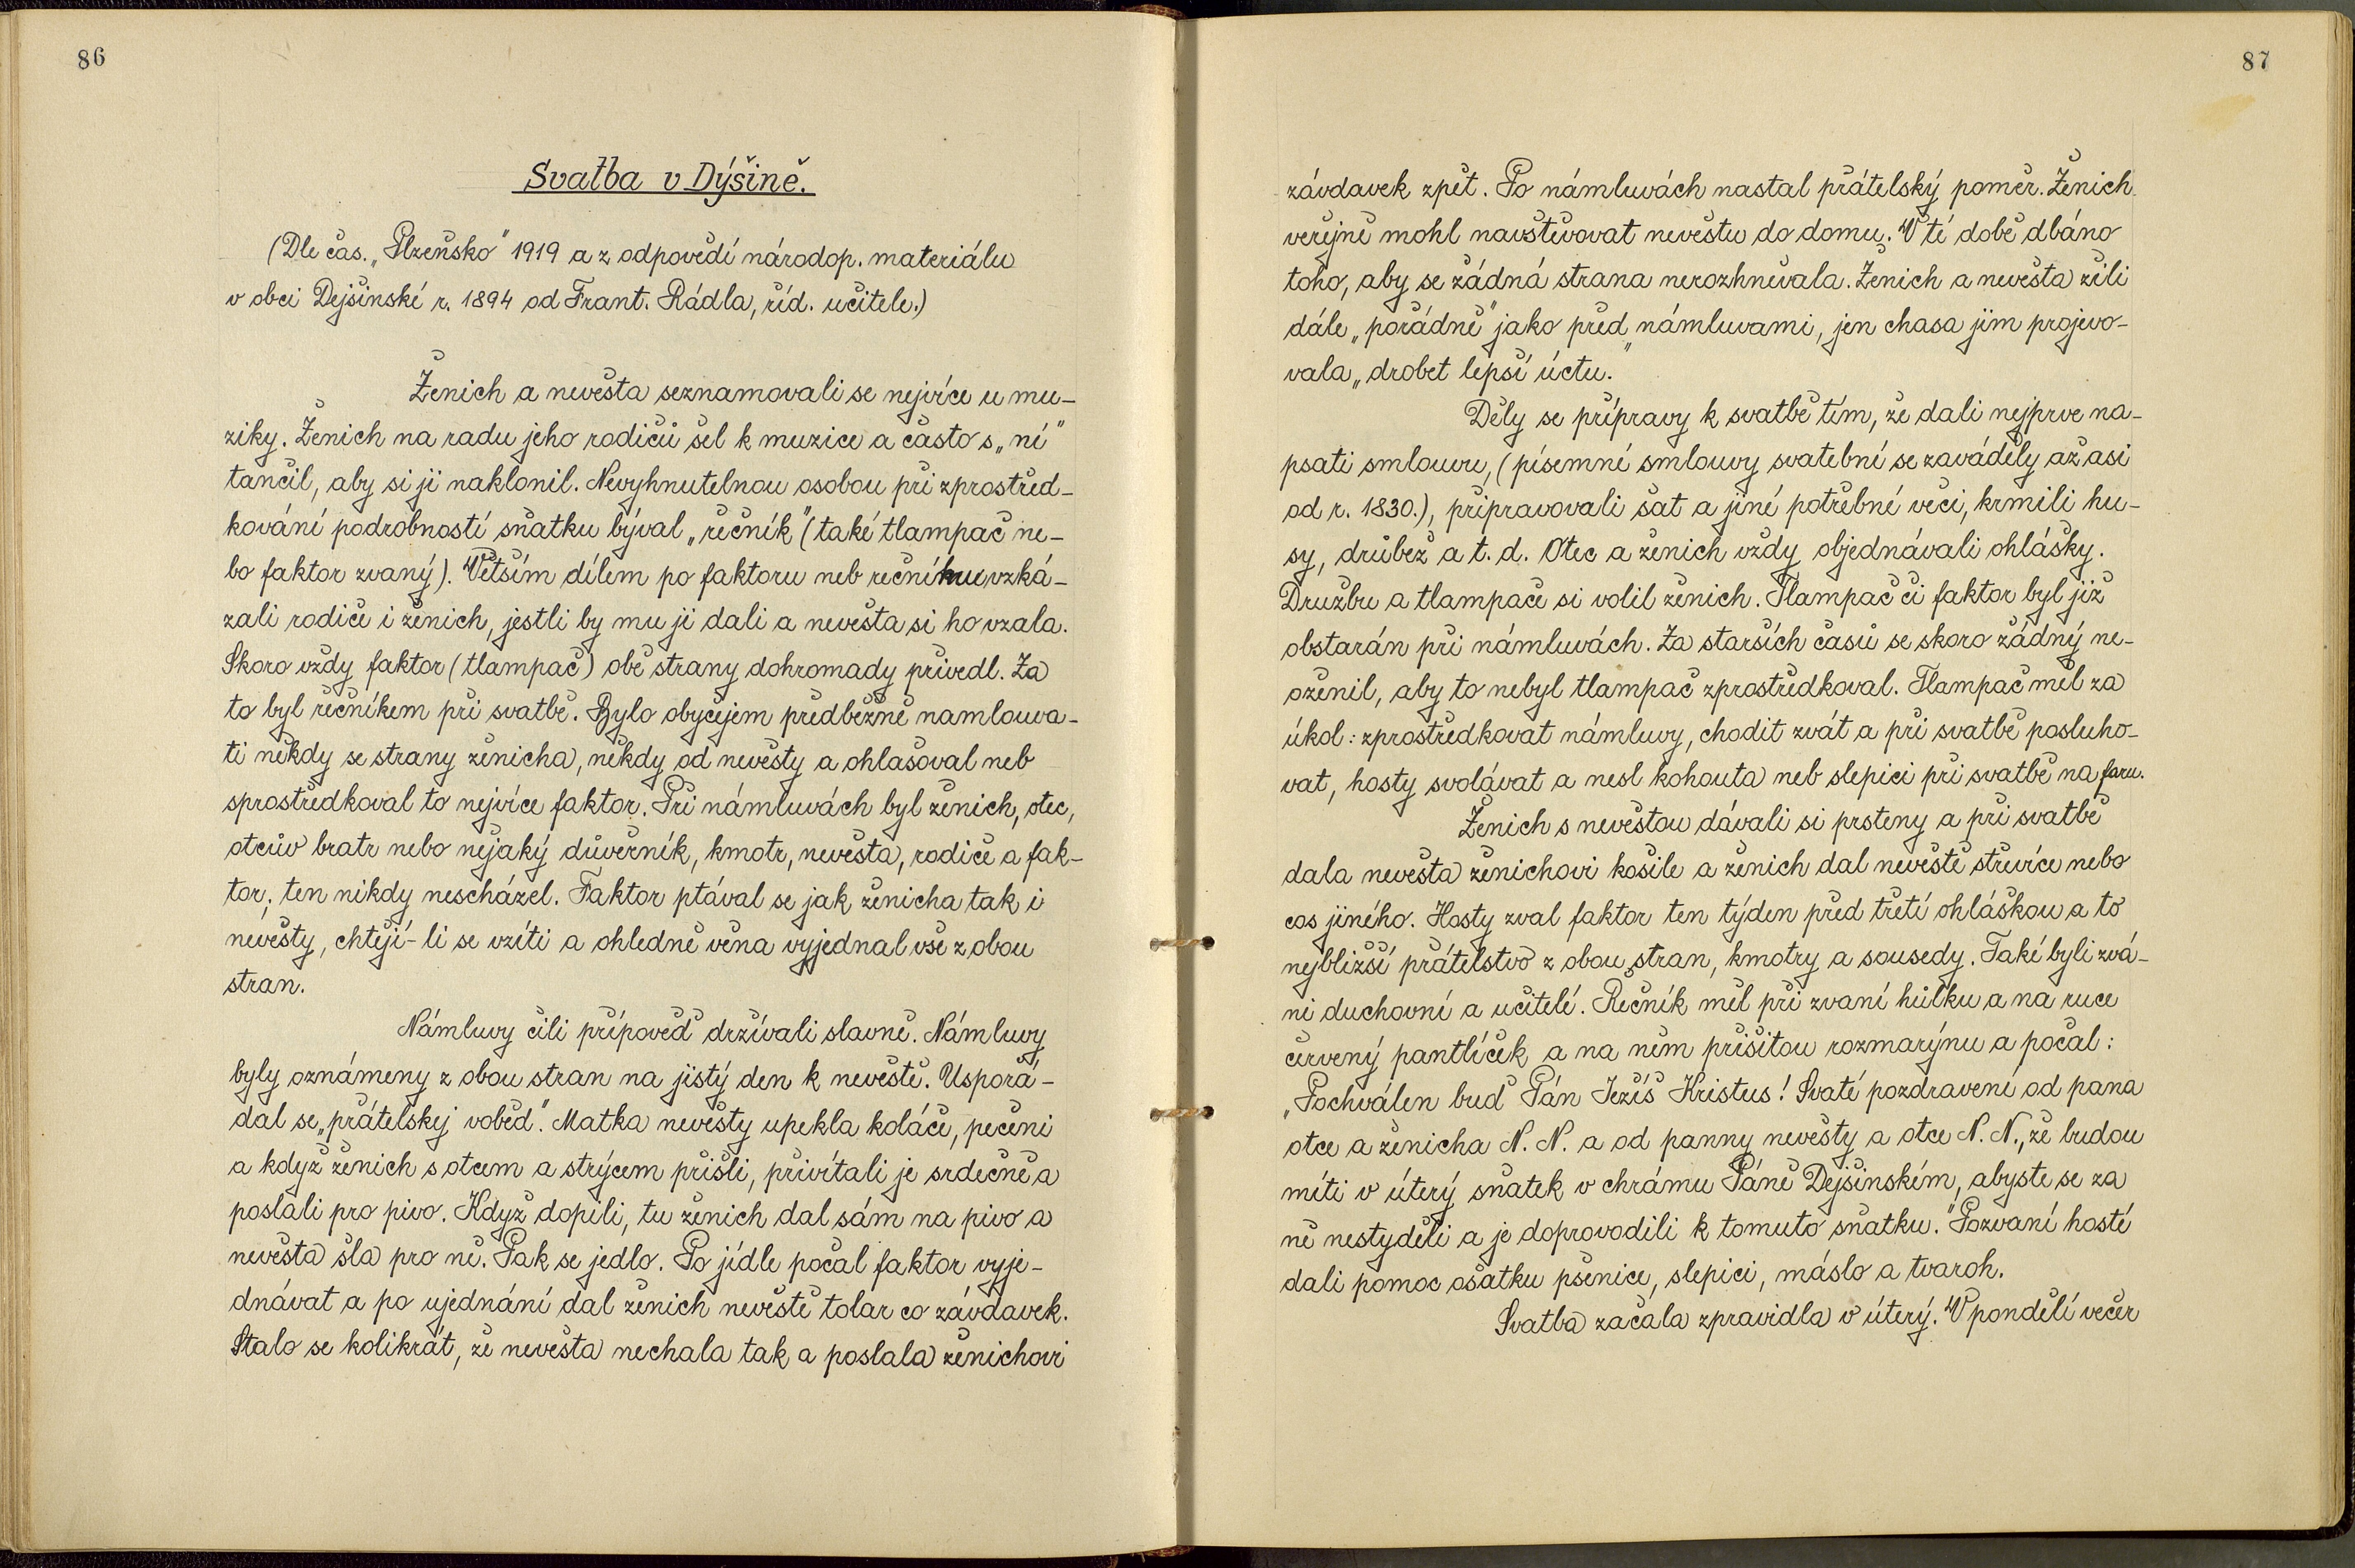 86
Svatba v Dýšině.
(Dle čas. „Plzeňsko" 1919 a z odpovědí národop. materiálu
v obci Dejšinské r. 1894 od Frant. Rádla, říd. učitele.)
Ženich a nevěsta seznamovali se nejvíce u mu-
ziky. Ženich na radu jeho rodičů šel k muzice a často s „ní"
tančil, aby si ji naklonil. Nevyhnutelnou osobou při zprostřed-
kování podrobností sňatku býval „řečník" (také tlampač ne-
bo faktor zvaný). Větším dílem po faktoru neb řečníku vzká-
zali rodiče i ženich, jestli by mu ji dali a nevěsta si ho vzala.
Skoro vždy faktor (tlampač) obě strany dohromady přivedl. Za
to byl řečníkem při svatbě. Bylo obyčejem předběžně namlouva-
ti někdy se strany ženicha, někdy od nevěsty a ohlašoval neb
sprostředkoval to nejvíce faktor. Při námluvách byl ženich, otec,
otcův bratr nebo nějaký důvěrník, kmotr, nevěsta, rodiče a fak-
tor; ten nikdy nescházel. Faktor ptával se jak ženicha tak i
nevěsty, chtějí-li se vzíti a ohledně věna vyjednal vše z obou
stran.
Námluvy čili přípověď držívali slavně. Námluvy
byly oznámeny z obou stran na jistý den k nevěstě. Uspořá-
dal se „přátelskej voběd". Matka nevěsty upekla koláče, pečeni
a když ženich s otcem a strýcem přišli, přivítali je srdečně a
poslali pro pivo. Když dopili, tu ženich dal sám na pivo a
nevěsta šla pro ně. Pak se jedlo. Po jídle počal faktor vyje-
dnávat a po ujednání dal ženich nevěstě tolar co závdavek.
Stalo se kolikrát, že nevěsta nechala tak a poslala ženichovi
87
závdavek zpět. Po námluvách nastal přátelský poměr. Ženich
veřejně mohl navštěvovat nevěstu do domu. V té době dbáno
toho, aby se žádná strana nerozhněvala. Ženich a nevěsta žili
dále „pořádně" jako před námluvami, jen chasa jim projevo-
vala „drobet lepší úctu."
Děly se přípravy k svatbě tím, že dali nejprve na-
psati smlouvu, (písemné smlouvy svatební se zaváděly až asi
od r. 1830.), připravovali šat a jiné potřebné věci, krmili hu-
sy, drůbež a t. d. Otec a ženich vždy objednávali ohlášky.
Družbu a tlampače si volil ženich. Tlampač či faktor byl již
obstarán při námluvách. Za starších časů se skoro žádný ne-
oženil, aby to nebyl tlampač zprostředkoval. Tlampač měl za
úkol: zprostředkovat námluvy, chodit zvát a při svatbě posluho-
vat, hosty svolávat a nesl kohouta neb slepici při svatbě na faru.
Ženich s nevěstou dávali si prsteny a při svatbě
dala nevěsta ženichovi košile a ženich dal nevěstě střevíce nebo
cos jiného. Hosty zval faktor ten týden před třetí ohláškou a to
nejbližší přátelstvo z obou stran, kmotry a sousedy. Také byli zvá-
ni duchovní a učitelé. Řečník měl při zvaní hůlku a na ruce
červený pantlíček a na něm přišitou rozmarýnu a počal:
„Pochválen buď Pán Ježíš Kristus! Svaté pozdravení od pana
otce a ženicha N. N. a od panny nevěsty a otce N. N., že budou
míti v úterý sňatek v chrámu Páně Dejšinském, abyste se za
ně nestyděli a je doprovodili k tomuto sňatku." Pozvaní hosté
dali pomoc ošatku pšenice, slepici, máslo a tvaroh.
Svatba začala zpravidla v úterý. V pondělí večer